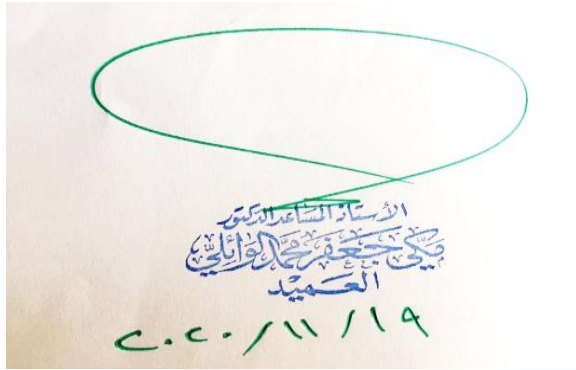 الأستاذ المساعد الدكتور
مكي جعفر محمد الوائلي
العميد
٢٠٢٠/١١/١٩